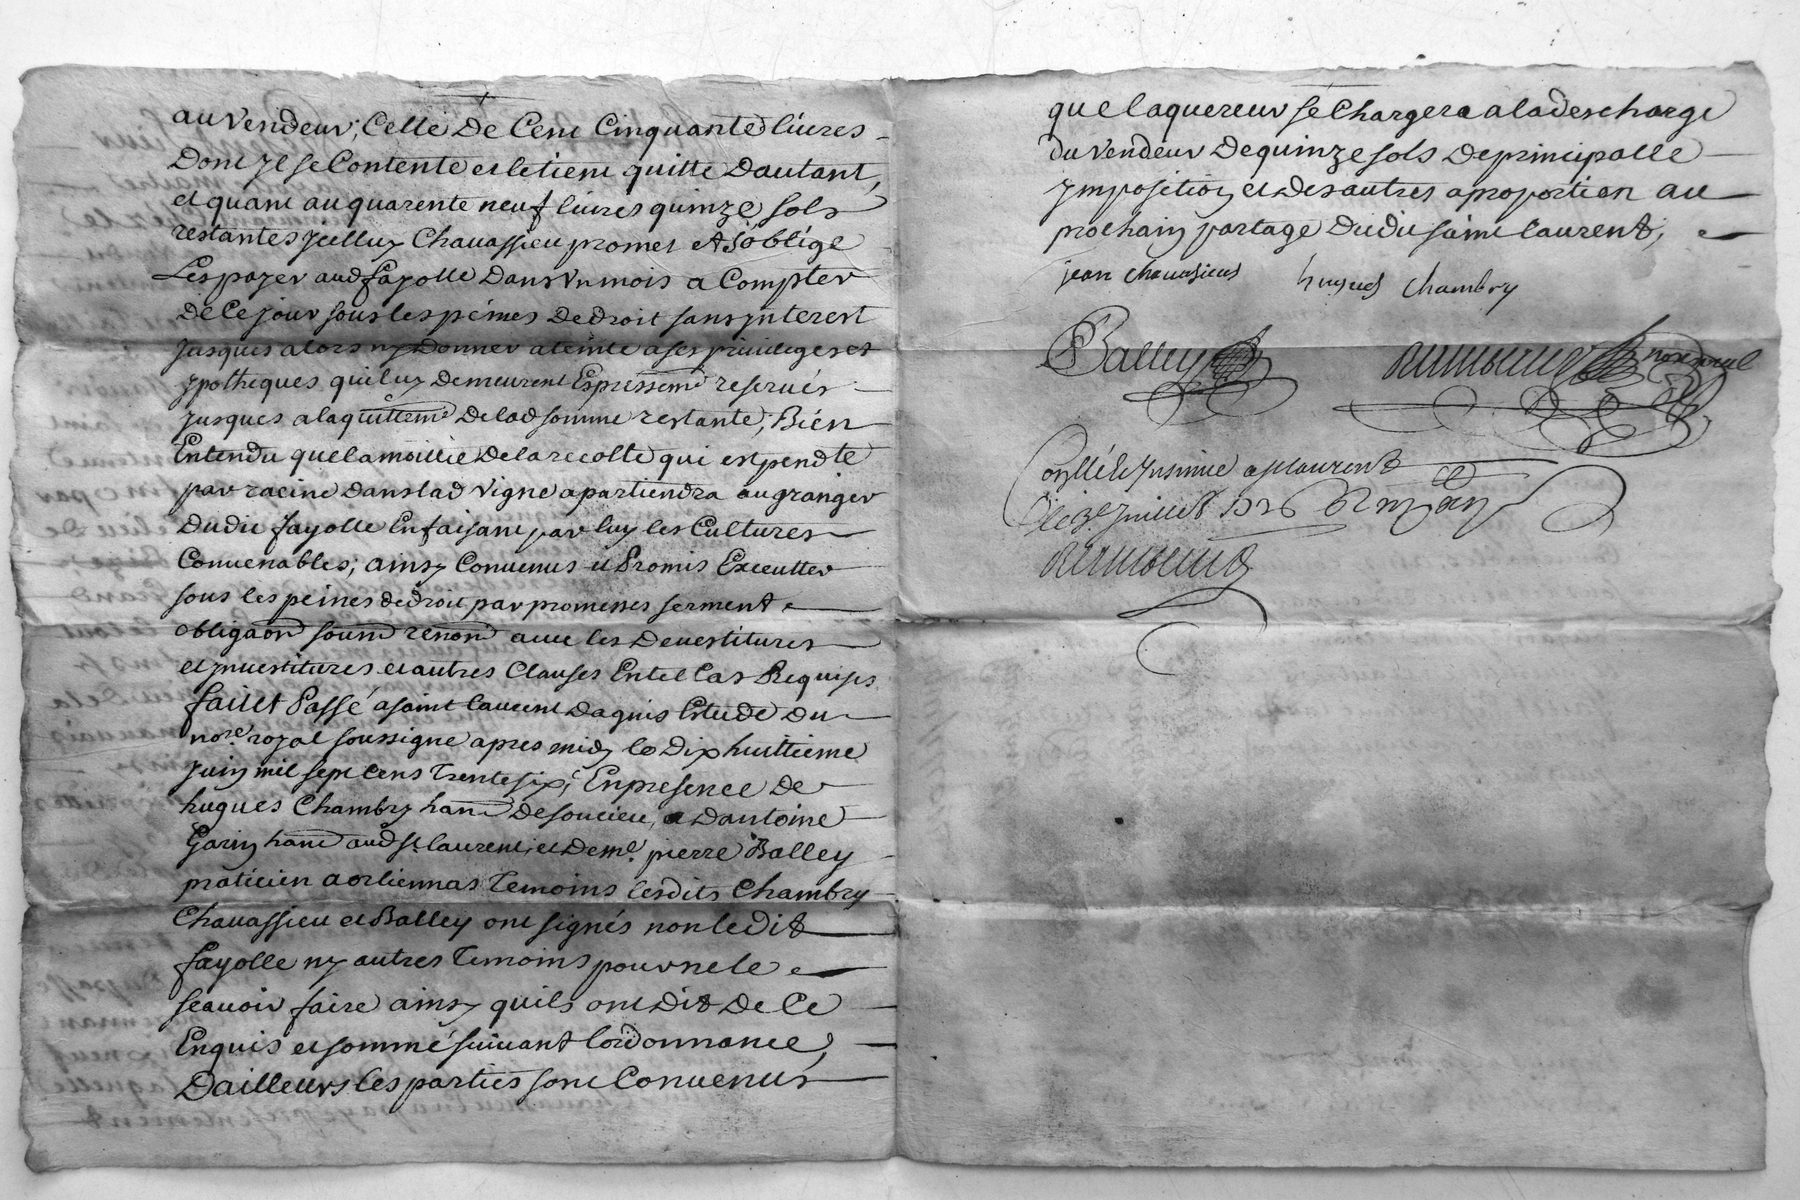 au vendeur, Celle De Cent Cinquante livres
Dont Jl se Contente et le tient quitte Dautant,
et quant au quarente neuf livres quinze sols
restantes Jcelluy Chavassieu promet et s'oblige
Les payer aud fayolle Dans un mois a Compter
de Ce jour sous les peines De droit sans jnterest
Jusques alors ny Donner ateinte a ses privileges et
ypotheques qui luy Demeurent Expressemt reservés
jusques a laquittemt de lad somme restante, Bien
Entendu que la moitié De la recolte qui est pendte
par racine Dans lad vigne apartiendra au granger
Dudit fayolle En faisant par luy les Cultures
Convenables; ainsy Convenus et Promis Executter
sous les peines de droit par promesses serment
obligaon soum renon avec les Devestitures
et jnvestitures et autres Clauses En tel Cas Requises
fait et Passé a saint laurent Dagnis Estude Du
nore royal soussigné apres midy le Dix huittieme
Juin mil sept cens Trente six, En presence De
hugues Chambry hant De soucieu, a Dantoine
Garin hant aud St laurent, et De me pierre Balley
praticien a orliennas Temoins lesdits Chambry
Chavassieu et Balley ont signés non ledit
fayolle ny autres Temoins pour ne le
scavoir faire ainsy quils ont Dit De Ce
Enquis et sommé suivant lordonnance,
Dailleurs les parties sont Convenus
que laquereur se Chargera a la descharge
du vendeur De quinze sols De principalle
jmposition et des autres a proportion au
prochain partage Dudit saint laurent,
jean chavassieus hugues chambry
Balley nore royal
Conllé & Jnsinué a St laurent
le 3e juillet 1736